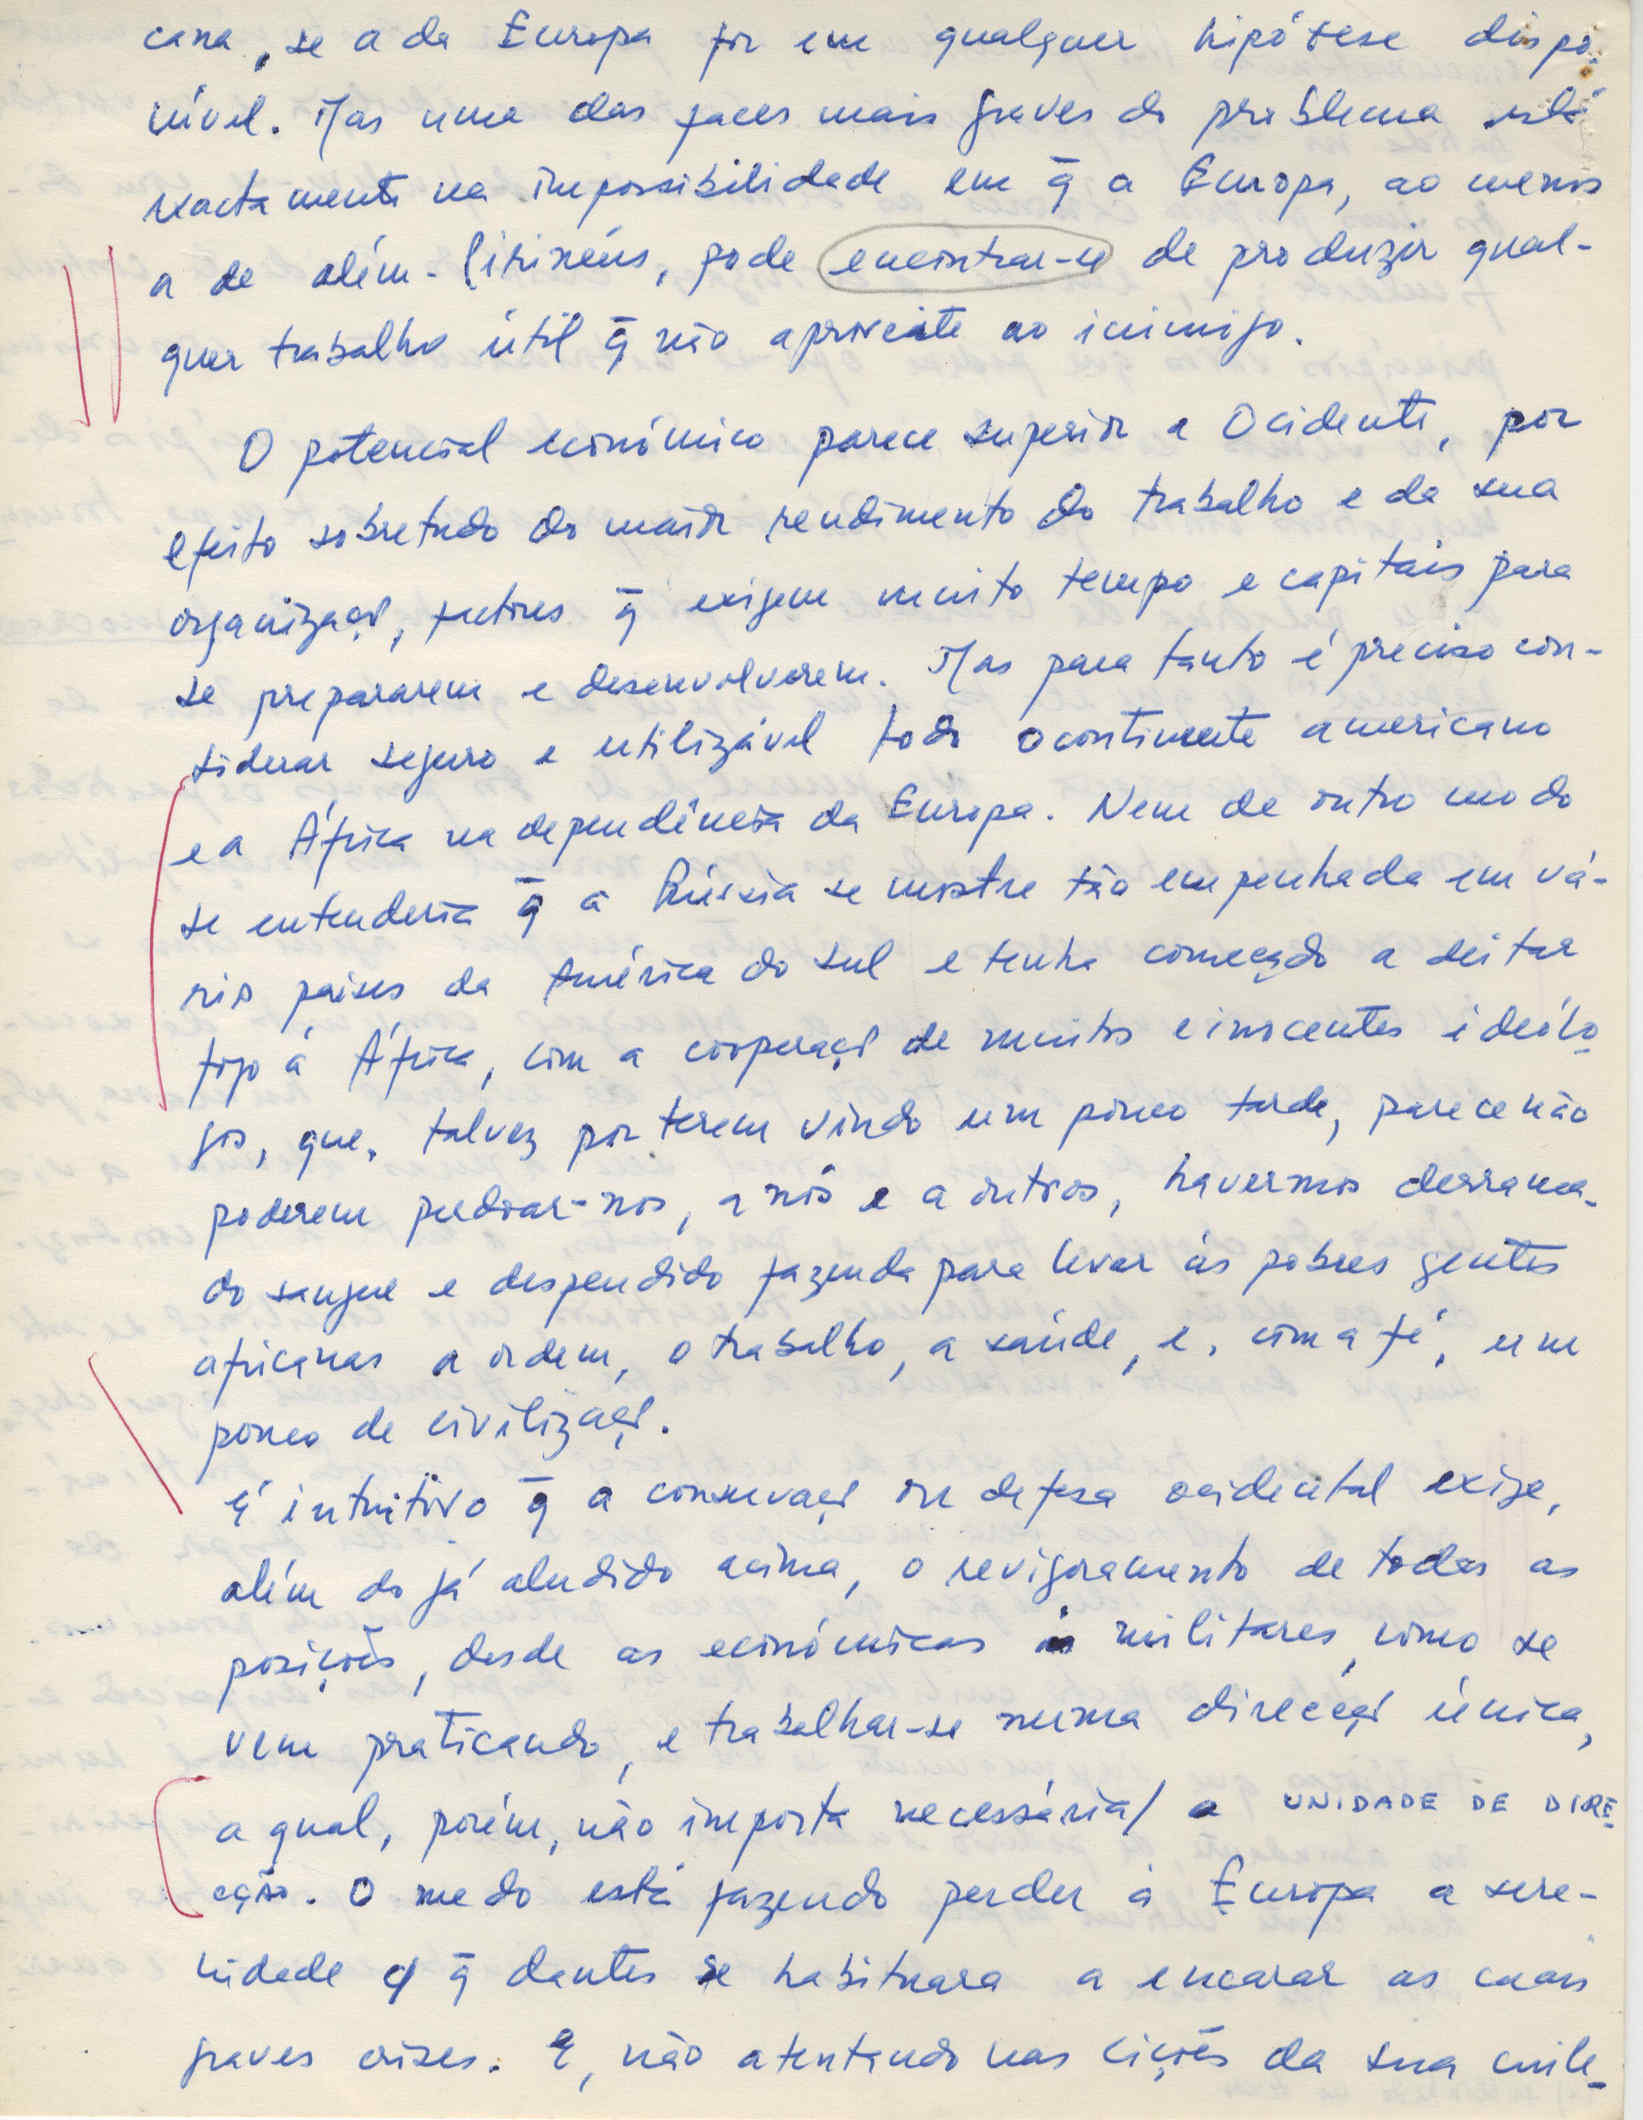 cana, se a da Europa for em qualquer hipótese dispo-
nível. Mas uma das faces mais graves do problema está
exactamente na impossibilidade em q̄ a Europa, ao menos
a de além-Pirinéus, pode encontrar-se de produzir qual-
quer trabalho útil q̄ não aproveite ao inimigo.
O potencial económico parece superior a Ocidente, por
efeito sobretudo do maior rendimento do trabalho e da sua
organizaçº, factores q̄ exigem muito tempo e capitais para
se prepararem e desenvolverem. Mas para tanto é preciso con-
siderar seguro e utilizável todo o continente americano
e a África na dependência da Europa. Nem de outro modo
se entenderia q̄ a Rússia se mostre tão empenhada em vá-
rios países da América do sul e tenha começado a deitar
fogo à África, com a cooperaçº de muitos e inocentes ideólo-
gos, que, talvez por terem vindo um pouco tarde, parece não
poderem perdoar-nos, a nós e a outros, havermos derrama-
do sangue e despendido fazenda para levar às pobres gentes
africanas a ordem, o trabalho, a saúde, e, com a fé, um
pouco de civilizaçº.
É intuitivo q̄ a conservaçº ou defesa ocidental exige,
além do já aludido acima, o revigoramento de todas as
posições, desde as económicas às militares, como se
vem praticando, e trabalhar-se numa direcçº única,
a qual, porém, não importa necessária/ a UNIDADE DE DIRE-
cção. O medo está fazendo perder à Europa a sere-
nidade c/ q̄ dantes se habituara a encarar as mais
graves crises. E, não atentando nas lições da sua mile-